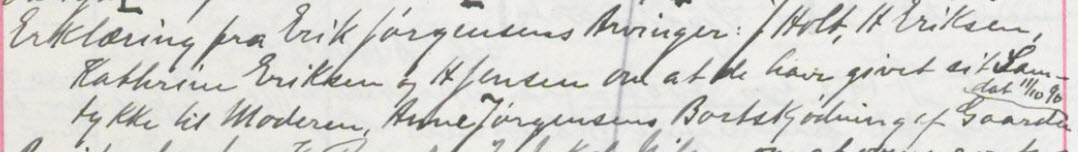 Erklæring fra Erik Jørgensens Arvinger: J Holt, H Eriksen,
Kathrine Eriksen og H Jensen om at de have givet sit Sam-
dat 11/10 90
tykke til Moderen, Anne Jørgensens Bortskjødning af Gaarden